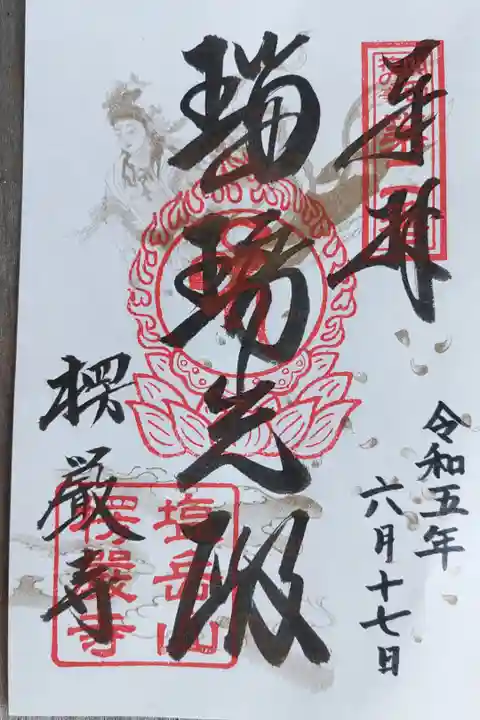 奉拝
令和五年
六月十七日
瑠璃光殿
楞厳寺
塩岳山
楞嚴寺